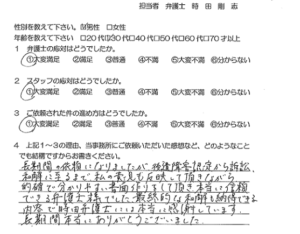 担当者 弁護士 時田 剛志
性別を教えて下さい。☑男性 □女性
年齢を教えて下さい □20代☑30代□40代□50代□60代□70才以上
1 弁護士の応対はどうでしたか。
①大変満足 ②満足 ③普通 ④不満 ⑤大変不満 ⑥分からない
2 スタッフの応対はどうでしたか。
①大変満足 ②満足 ③普通 ④不満 ⑤大変不満 ⑥分からない
3 ご依頼された件の進め方はどうでしたか。
①大変満足 ②満足 ③普通 ④不満 ⑤大変不満 ⑥分からない
4 上記1～3の理由、当事務所にご依頼いただいた感想など、どのようなこと
でも結構ですからお書きください。
長期間の依頼になりましたが後遺障害認定から訴訟、
和解に至るまで私の意見も反映して頂きながら
的確で分かりやすい書面作りをして頂き本当に信頼
できる弁護士様でした。最終的な和解も納得できる
内容で時田弁護士には本当に感謝しています。
長期間本当にありがとうございました。